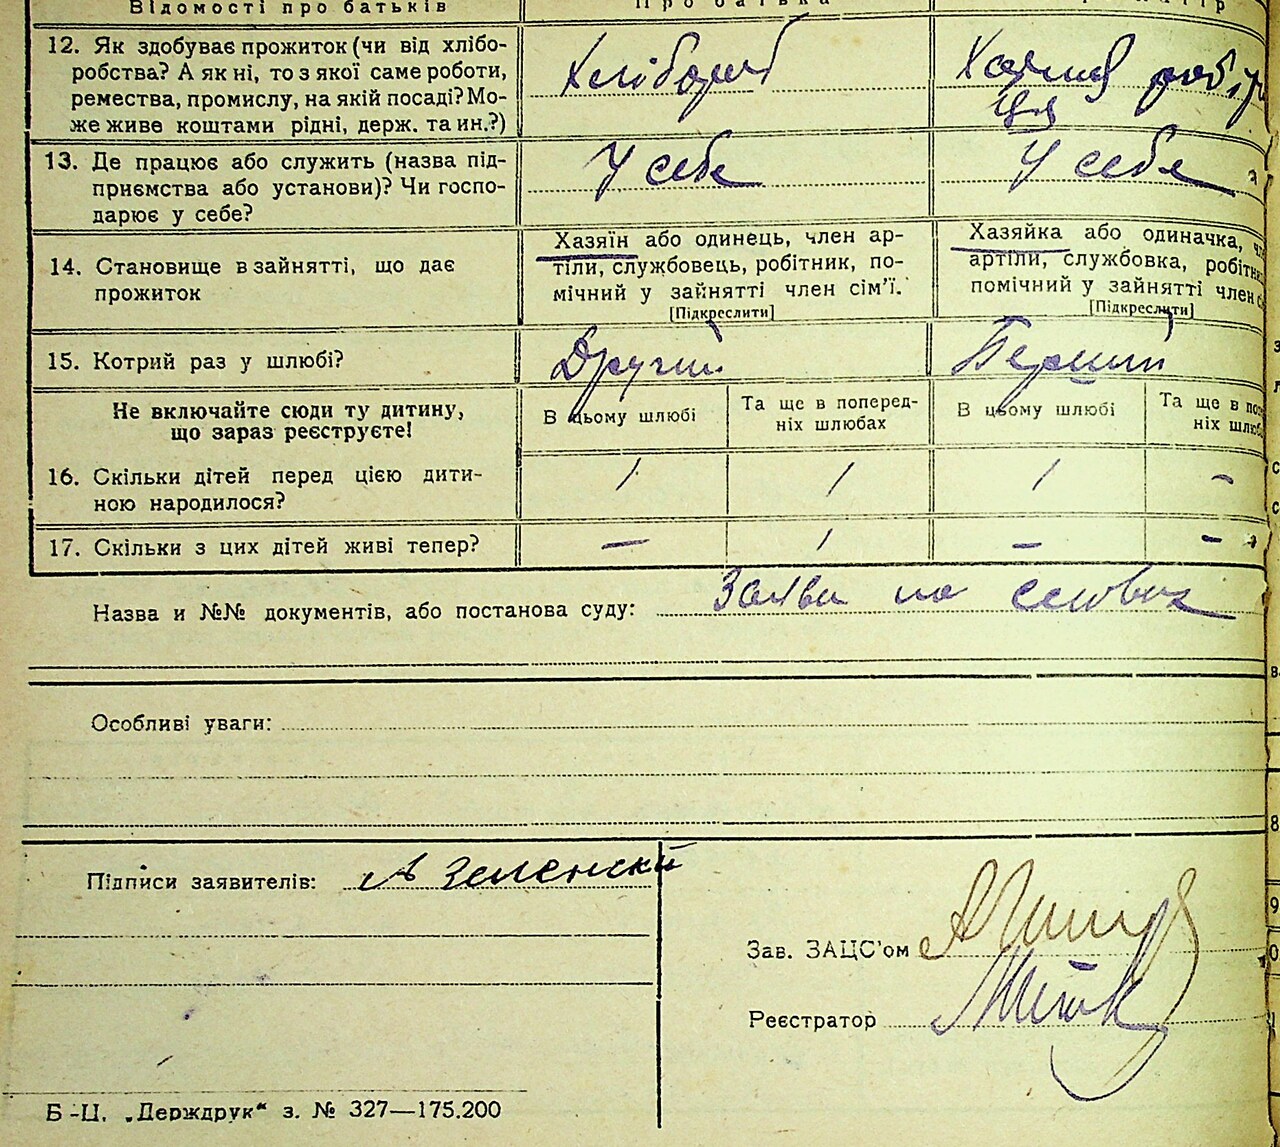 Відомості про батьків
Про батька
12. Як здобуває прожиток (чи від хлібо-
робства? А як ні, то з якої саме роботи,
ремества, промислу, на якій посаді? Мо-
же живе коштами рідні, держ. та ин.?)
Хлібороб
Хатня робіт
ця
13. Де працює або служить (назва під-
приємства або установи)? Чи госпо-
дарює у себе?
У себе
У себе
14. Становище в зайнятті, що дає
прожиток
Хазяїн або одинець, член ар-
тіли, службовець, робітник, по-
мічний у зайнятті член сім'ї.
[Підкреслити]
Хазяйка або одиначка, чл
артіли, службовка, робітн
помічний у зайнятті член с
[Підкреслити]
15. Котрий раз у шлюбі?
Другий
Перший
Не включайте сюди ту дитину,
що зараз реєструєте!
В цьому шлюбі
Та ще в поперед-
ніх шлюбах
В цьому шлюбі
Та ще в поп
ніх шлюб
16. Скільки дітей перед цією дити-
ною народилося?
1 1 1 -
17. Скільки з цих дітей живі тепер?
- 1 - -
Назва и №№ документів, або постанова суду: Заява на словах
Особливі уваги:
Підписи заявителів: А Зеленский
Зав. ЗАЦС'ом
Реєстратор
Б-Ц. „Держдрук“ з. № 327—175.200